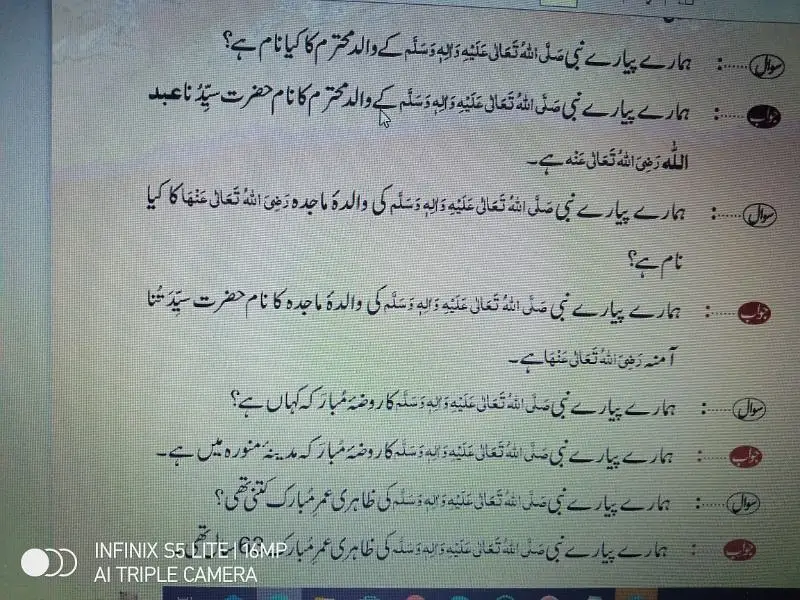 سوال......: ہمارے پیارے نبی صَلَّی اللہُ تَعَالٰی عَلَیْہِ وَاٰلِہٖ وَسَلَّم کے والد محترم کا کیا نام ہے؟
جواب......: ہمارے پیارے نبی صَلَّی اللہُ تَعَالٰی عَلَیْہِ وَاٰلِہٖ وَسَلَّم کے والد محترم کا نام حضرت سیِّدُنا عبد
اللّٰہ رَضِیَ اللہُ تَعَالٰی عَنْہ ہے۔
سوال......: ہمارے پیارے نبی صَلَّی اللہُ تَعَالٰی عَلَیْہِ وَاٰلِہٖ وَسَلَّم کی والدۂ ماجدہ رَضِیَ اللہُ تَعَالٰی عَنْہَا کا کیا
نام ہے؟
جواب......: ہمارے پیارے نبی صَلَّی اللہُ تَعَالٰی عَلَیْہِ وَاٰلِہٖ وَسَلَّم کی والدۂ ماجدہ کا نام حضرت سیِّدَتُنا
آمنہ رَضِیَ اللہُ تَعَالٰی عَنْہَا ہے۔
سوال......: ہمارے پیارے نبی صَلَّی اللہُ تَعَالٰی عَلَیْہِ وَاٰلِہٖ وَسَلَّم کا روضۂ مُبارَکہ کہاں ہے؟
جواب......: ہمارے پیارے نبی صَلَّی اللہُ تَعَالٰی عَلَیْہِ وَاٰلِہٖ وَسَلَّم کا روضۂ مُبارَکہ مدینۂ منورہ میں ہے۔
سوال......: ہمارے پیارے نبی صَلَّی اللہُ تَعَالٰی عَلَیْہِ وَاٰلِہٖ وَسَلَّم کی ظاہری عمر مبارک کتنی تھی؟
جواب......: ہمارے پیارے نبی صَلَّی اللہُ تَعَالٰی عَلَیْہِ وَاٰلِہٖ وَسَلَّم کی ظاہری عمر مُبارک 63 تھی
INFINIX S5 LITE | 16MP
AI TRIPLE CAMERA